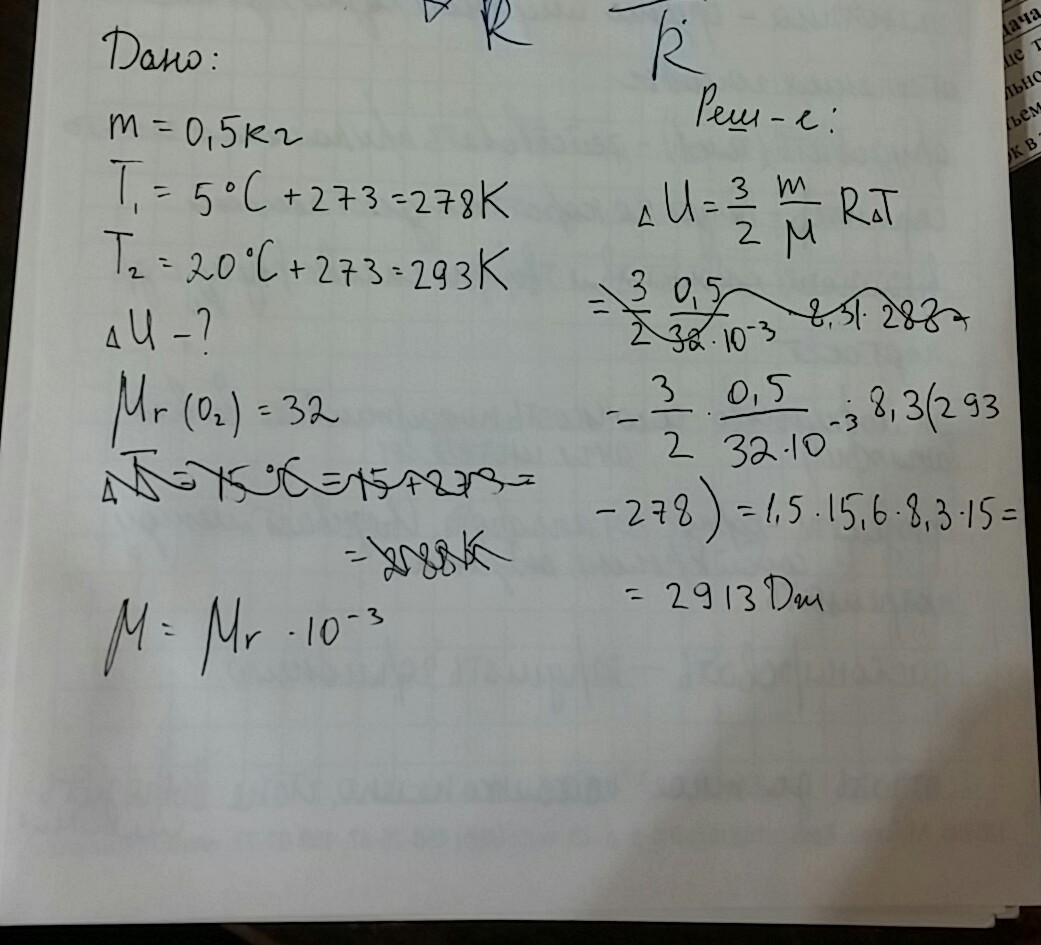 R
k
Дано:
m = 0,5кг
T₁ = 5°C + 273 = 278K
T₂ = 20°C + 273 = 293K
ΔU - ?
Mr (O₂) = 32
ΔT = 15°C = 15 + 273 =
= 288K
M = Mr · 10⁻³
Реш-е:
ΔU = 3/2 m/M RΔT
= 3/2 0,5/32·10⁻³ · 8,31 · 288
- 3/2 · 0,5/32·10⁻³ · 8,3(293
- 278) = 1,5 · 15,6 · 8,3 · 15 =
= 2913 Дж